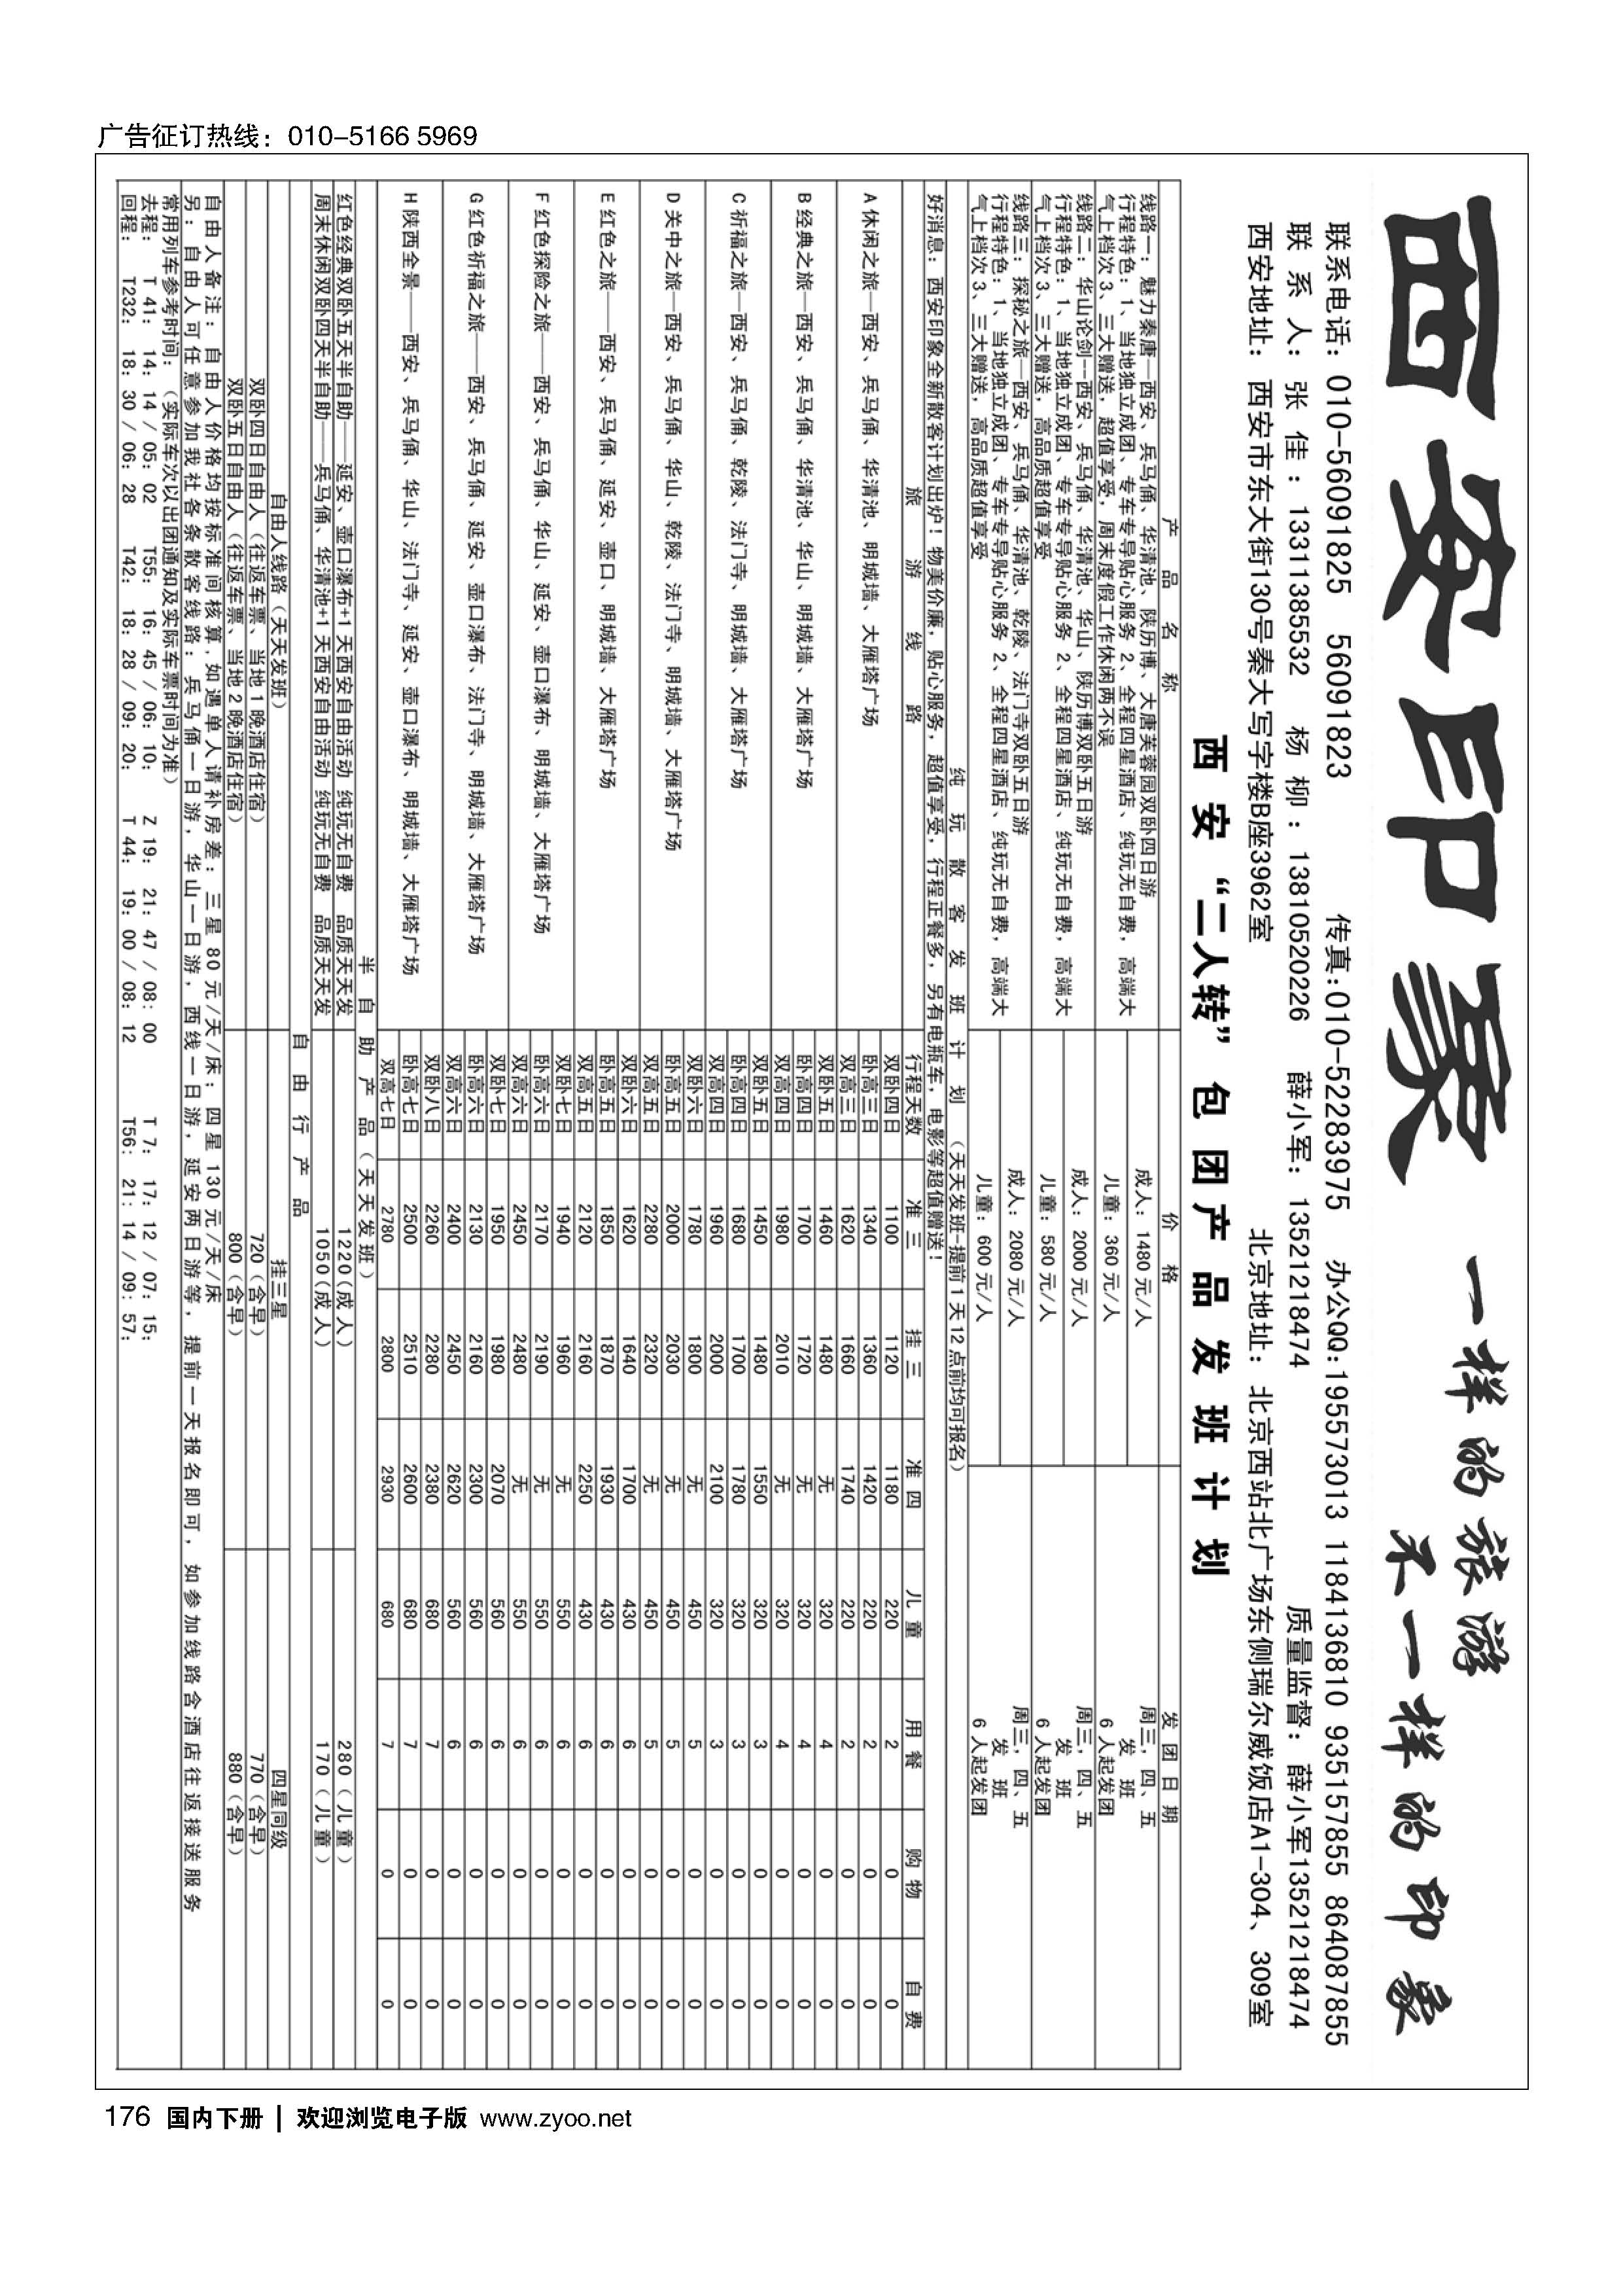 广告征订热线：010-5166 5969
西安印象 一样的旅游 不一样的印象
联系电话：010-56091825 56091823 传真:010-52283975 办公QQ:195573013 1184136810 935157855 864087855
联 系 人：张 佳：13311385532 杨 柳：13810520226 薛小军：13521218474 质量监督：薛小军13521218474
西安地址：西安市东大街130号秦大写字楼B座3962室 北京地址：北京西站北广场东侧瑞尔威饭店A1-304、309室
西安“二人转”包团产品发班计划
产 品 名 称 价 格 发 团 日 期
线路一：魅力秦唐—西安、兵马俑、华清池、陕历博、大唐芙蓉园双卧四日游
行程特色：1、当地独立成团、专车专导贴心服务 2、全程四星酒店、纯玩无自费，高端大
气上档次 3、三大赠送，超值享受，周末度假工作休闲两不误
成人：1480 元/人
儿童：360 元/人
周三，四、五
发 班
6 人起发团
线路二：华山论剑--西安、兵马俑、华清池、华山、陕历博双卧五日游
行程特色：1、当地独立成团、专车专导贴心服务 2、全程四星酒店、纯玩无自费，高端大
气上档次 3、三大赠送，高品质超值享受
成人：2000 元/人
儿童：580 元/人
周三，四、五
发 班
6 人起发团
线路三：探秘之旅—西安、兵马俑、华清池、乾陵、法门寺双卧五日游
行程特色：1、当地独立成团、专车专导贴心服务 2、全程四星酒店、纯玩无自费，高端大
气上档次 3、三大赠送，高品质超值享受
成人：2080 元/人
儿童：600 元/人
周三，四、五
发 班
6 人起发团
纯 玩 散 客 发 班 计 划 （天天发班-提前 1 天 12 点前均可报名）
好消息：西安印象全新散客计划出炉！物美价廉，贴心服务，超值享受，行程正餐多，另有电瓶车，电影等超值赠送！
旅 游 线 路 行程天数 准 三 挂 三 准 四 儿 童 用 餐 购 物 自 费
A 休闲之旅—西安、兵马俑、华清池、明城墙、大雁塔广场
双卧四日 1100 1120 1180 220 2 0 0
卧高三日 1340 1360 1420 220 2 0 0
双高三日 1620 1660 1740 220 2 0 0
B 经典之旅—西安、兵马俑、华清池、华山、明城墙、大雁塔广场
双卧五日 1460 1480 无 320 4 0 0
卧高四日 1700 1720 无 320 4 0 0
双高四日 1980 2010 无 320 4 0 0
C 祈福之旅—西安、兵马俑、乾陵、法门寺、明城墙、大雁塔广场
双卧五日 1450 1480 1550 320 3 0 0
卧高四日 1680 1700 1780 320 3 0 0
双高四日 1960 2000 2100 320 3 0 0
D 关中之旅—西安、兵马俑、华山、乾陵、法门寺、明城墙、大雁塔广场
双卧六日 1780 1800 无 450 5 0 0
卧高五日 2000 2030 无 450 5 0 0
双高五日 2280 2320 无 450 5 0 0
E 红色之旅——西安、兵马俑、延安、壶口、明城墙、大雁塔广场
双卧六日 1620 1640 1700 430 6 0 0
卧高五日 1850 1870 1930 430 6 0 0
双高五日 2120 2160 2250 430 6 0 0
F 红色探险之旅——西安、兵马俑、华山、延安、壶口瀑布、明城墙、大雁塔广场
双卧七日 1940 1960 无 550 6 0 0
卧高六日 2170 2190 无 550 6 0 0
双高六日 2450 2480 无 550 6 0 0
G 红色祈福之旅——西安、兵马俑、延安、壶口瀑布、法门寺、明城墙、大雁塔广场
双卧七日 1950 1980 2070 560 6 0 0
卧高六日 2130 2160 2300 560 6 0 0
双高六日 2400 2450 2620 560 6 0 0
H 陕西全景——西安、兵马俑、华山、法门寺、延安、壶口瀑布、明城墙、大雁塔广场
双卧八日 2260 2280 2380 680 7 0 0
卧高七日 2500 2510 2600 680 7 0 0
双高七日 2780 2800 2930 680 7 0 0
半 自 助 产 品（天天发班）
红色经典双卧五天半自助——延安、壶口瀑布+1 天西安自由活动 纯玩无自费 品质天天发 1220(成人) 280（儿童）
周末休闲双卧四天半自助——兵马俑、华清池+1 天西安自由活动 纯玩无自费 品质天天发 1050(成人) 170（儿童）
自 由 行 产 品
自由人线路（天天发班） 挂三星 四星同级
双卧四日自由人（往返车票、当地 1 晚酒店住宿） 720（含早） 770（含早）
双卧五日自由人（往返车票、当地 2 晚酒店住宿） 800（含早） 880（含早）
自由人备注：自由人价格均按标准间核算，如遇单人请补房差：三星 80 元/天/床；四星 130 元/天/床
另：自由人可任意参加我社各条散客线路：兵马俑一日游，华山一日游，西线一日游，延安两日游等，提前一天报名即可，如参加线路含酒店往返接送服务
常用列车参考时间：（实际车次以出团通知及实际车票时间为准）
去程： T 41：14：14 / 05：02 T55：16：45 / 06：10： Z 19：21：47 / 08：00 T 7：17：12 / 07：15：
回程： T232：18：30 / 06：28 T42：18：28 / 09：20： T 44：19：00 / 08：12 T56：21：14 / 09：57：
176 国内下册 | 欢迎浏览电子版 www.zyoo.net